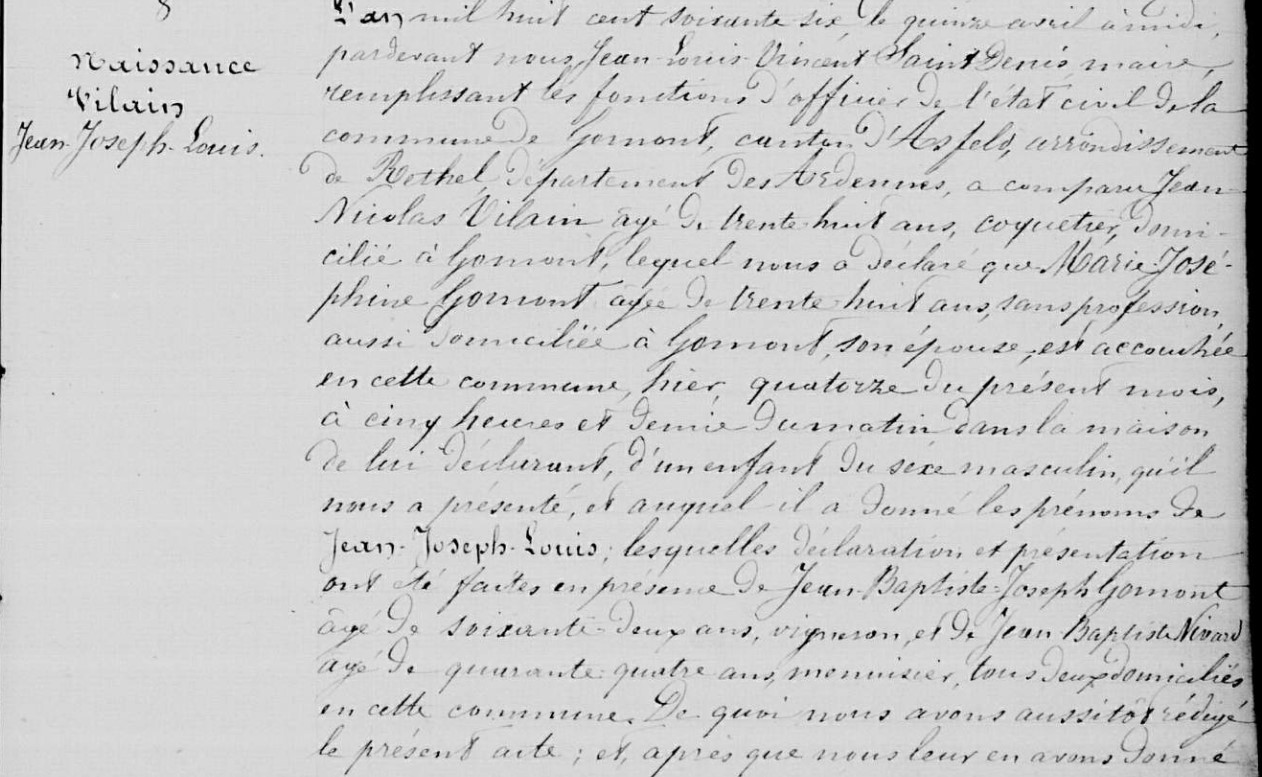 8
Naissance
Vilain
Jean-Joseph-Louis.
L'an mil huit cent soixante six le quinze avril à midi,
pardevant nous Jean-Louis-Vincent Saint Denis maire,
remplissant les fonctions d'officier de l'état civil de la
commune de Gomont, canton d'Asfeld, arrondissement
de Rethel, département des Ardennes, a comparu Jean
Nicolas Vilain âgé de trente huit ans, coquetier, domi-
cilié à Gomont, lequel nous a déclaré que Marie-José-
phine Gomont âgée de trente huit ans, sans profession,
aussi domiciliée à Gomont, son épouse, est accouchée
en cette commune, hier, quatorze du présent mois,
à cinq heures et demie du matin dans la maison
de lui déclarant, d'un enfant du sexe masculin, qu'il
nous a présenté, et auquel il a donné les prénoms de
Jean-Joseph-Louis; lesquelles déclaration et présentation
ont été faites en présence de Jean-Baptiste-Joseph Gomont
âgé de soixante-deux ans, vigneron, et de Jean Baptiste Nivard
âgé de quarante quatre ans, menuisier, tous deux domiciliés
en cette commune. De quoi nous avons aussitôt rédigé
le présent acte; et, après que nous leur en avons donné